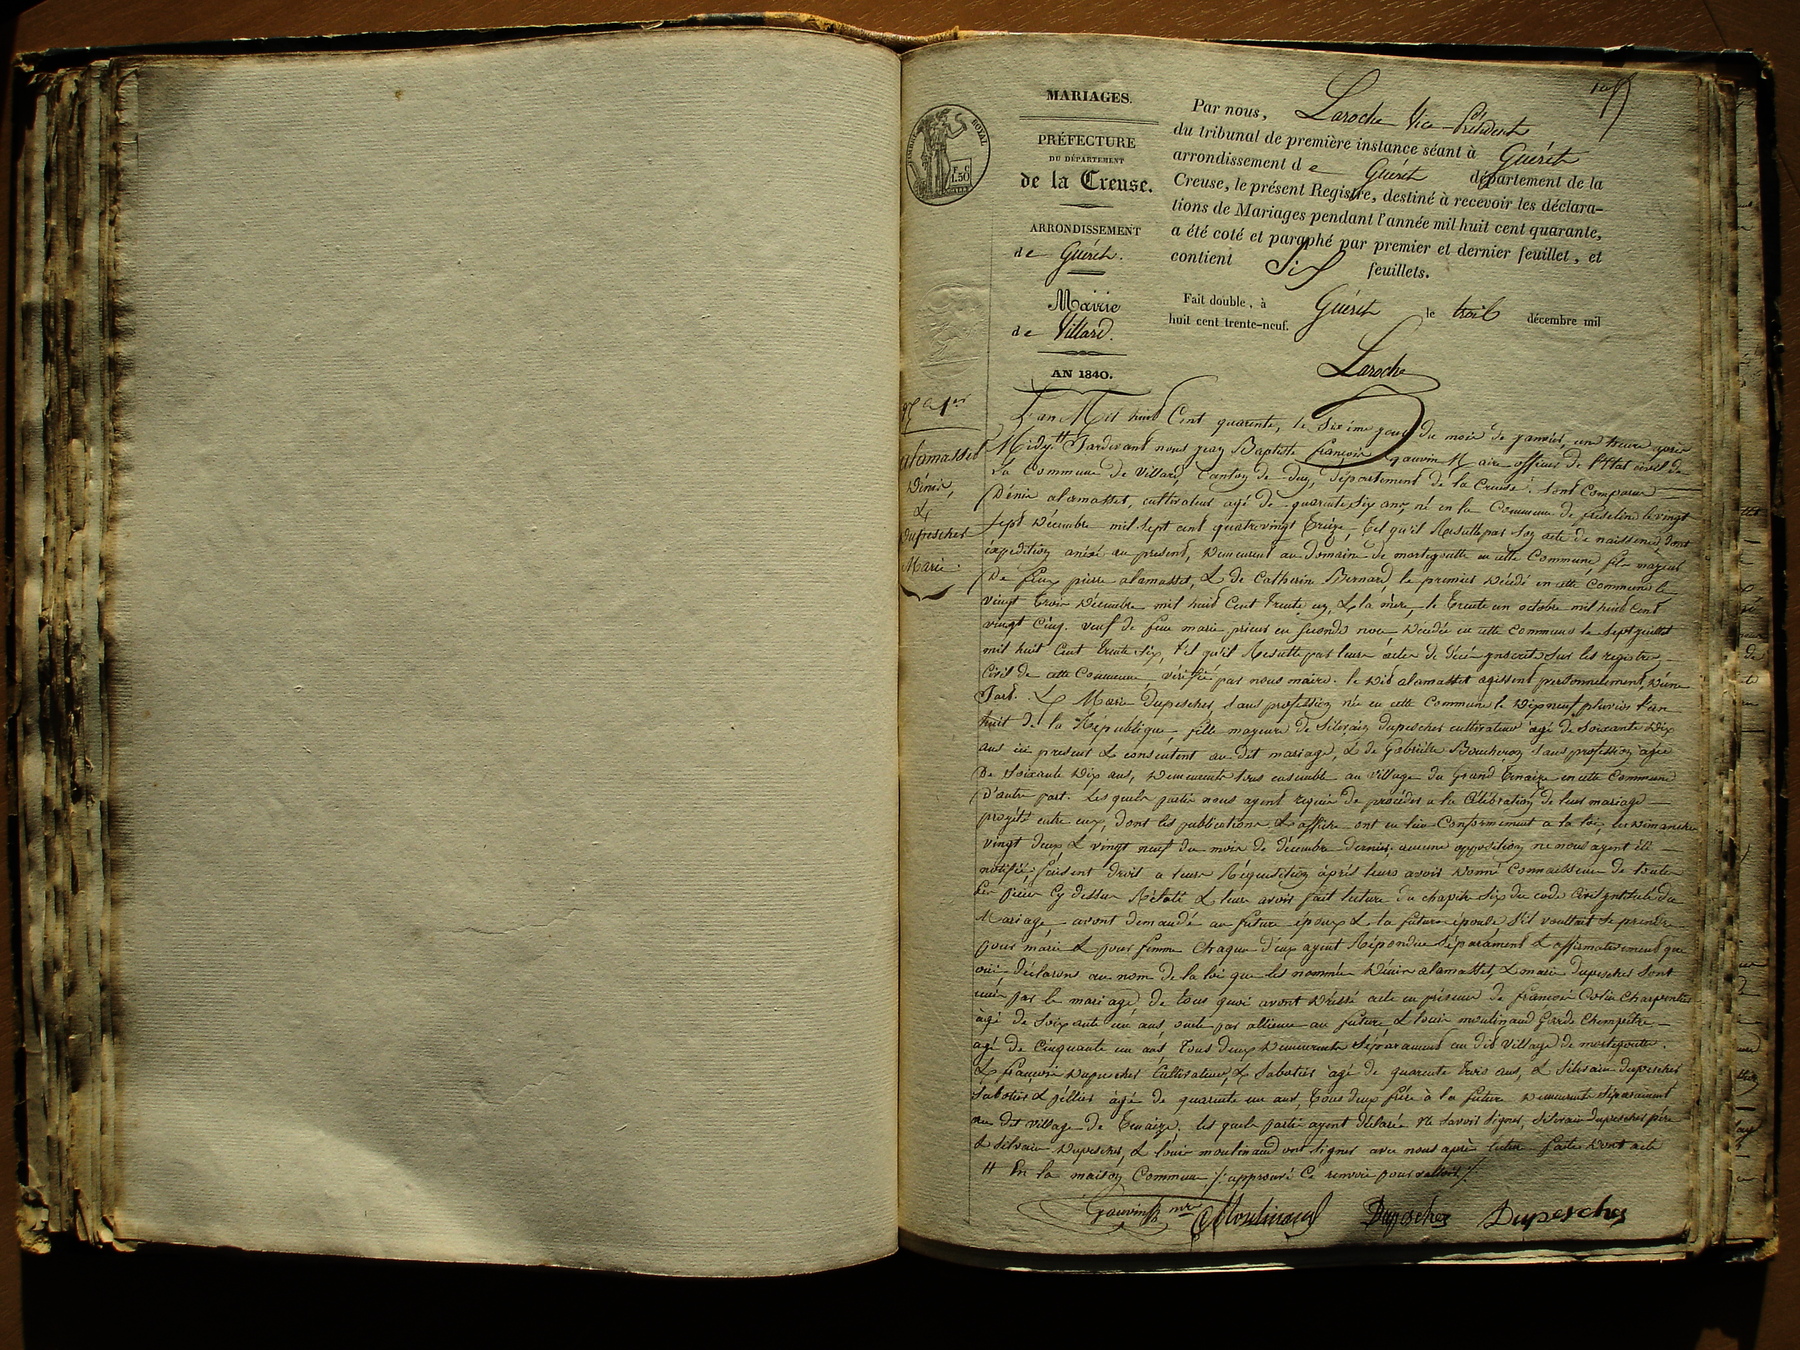 MARIAGES.
PRÉFECTURE
DU DÉPARTEMENT
de la Creuse.
ARRONDISSEMENT
de Guéret.
Mairie
de Villard.
AN 1840.
TIMBRE ROYAL
F. C.
1.50
Par nous, Laroche Vice Président
du tribunal de première instance séant à Guéret
arrondissement de Guéret département de la
Creuse, le présent Registre, destiné à recevoir les déclara-
tions de Mariages pendant l'année mil huit cent quarante,
a été coté et paraphé par premier et dernier feuillet, et
contient Six feuillets.
Fait double, à Guéret le trois décembre mil
huit cent trente-neuf.
Laroche
1er
alamasset
Dénis,
&
dupescher
Marie.
L'an Mil huit Cent quarante, le Sixième jour du mois de janvier, une heure après
Midy # Pardevant nous jean Baptiste françois gauvin Maire officier de l'Etat civil de
La Commune de Villard, Canton de dun, département de la Creuse. Sont Comparus
Dénis alamasset, cultivateur agé de quarante Six ans, né en la Commune de freseline le vingt
Sept Décembre mil Sept cent quatrevingt treize, tel qu'il Résulte par Son acte de naissance, dont
expédition anéxé au présent, Demeurant au Domaine de mortegoutte en cette Commune, fils majeur
De feux pierre alamasset, & de Catherine Bernard, le premier Décédé en cette Commune le
vingt trois Décembre mil huit Cent trente un, & la mère, le trente un octobre mil huit cent
vingt Cinq. veuf de feue marie prieur en seconde noce, Décédée en cette Commune le Sept juillet
mil huit Cent trente Six, tel qu'il Résulte par leurs actes de décès ynscrits Sur les registres
Civil de cette Commune, vérifié par nous maire. le dit alamasset agissent personnelement, D'une
Part. & Marie Dupescher, Sans profession née en cette Commune le Dix neuf pluvios l'an
huit de la République, fille majeure de Silvain Dupescher cultivateur agé de Soixante Dix
ans ici présent & consentent au dit mariage, & de Gabrielle Boucheron Sans profession agée
De Soixante Dix ans, Demeurente tous ensemble au village du Grand Tenaize en cette Commune
D'autre part. Lesquels partie nous ayent requis de procéder a la Célébration de leur mariage
projeté entre eux, dont les publications & affiche ont eu lieu Conformement a la loi, les Dimanche
vingt deux & vingt neuf du mois de décembre dernier. aucune opposition ne nous ayent été
notifiée, faisent Droit a leurs Réquisition après leurs avoir Donné Connaissence de toutes
les pièces Cy dessus Rélaté & leurs avoir fait lecture du chapitre Six du code Civil yntitulé du
Mariage, avont demandé au future époux & la future épouse S'il voultait Se prendre
pour marie & pour femme Chaque d'eux ayent Répondue Séparament & affirmativement que
oui, déclarons au nom de la loi que les nommée Dénis alamasset, & marie Dupescher Sont
unis par le mariage de tous quoi avont Dressé acte en présence de françois Colin Charpentier
agé de Soixante un ans, oncle par allience au future, & louis moulinaud Garde Champêtre
agé de Cinquante un ans, Tous deux Demeurente Séparament au dit Village de mortegoutte.
& françois Dupescher Cultivateur, & Sabotier agé de quarente trois ans, & Silvain Dupescher
Sabotier & agé de quarante un ans, Tous deux frère à la future Demeurente Séparament
au dit village de Tenaize. les quels partie ayent déclarée Ne Savoir Signer, Silvain Dupescher père
& Silvain Dupescher, & louis moulinaud ont Signer avec nous après lecture faite Dont acte
# En la maison Commune, /. approuvé Ce renvoie pour valloir /.
Gauvin mre Moulinaud Dupescher Dupescher